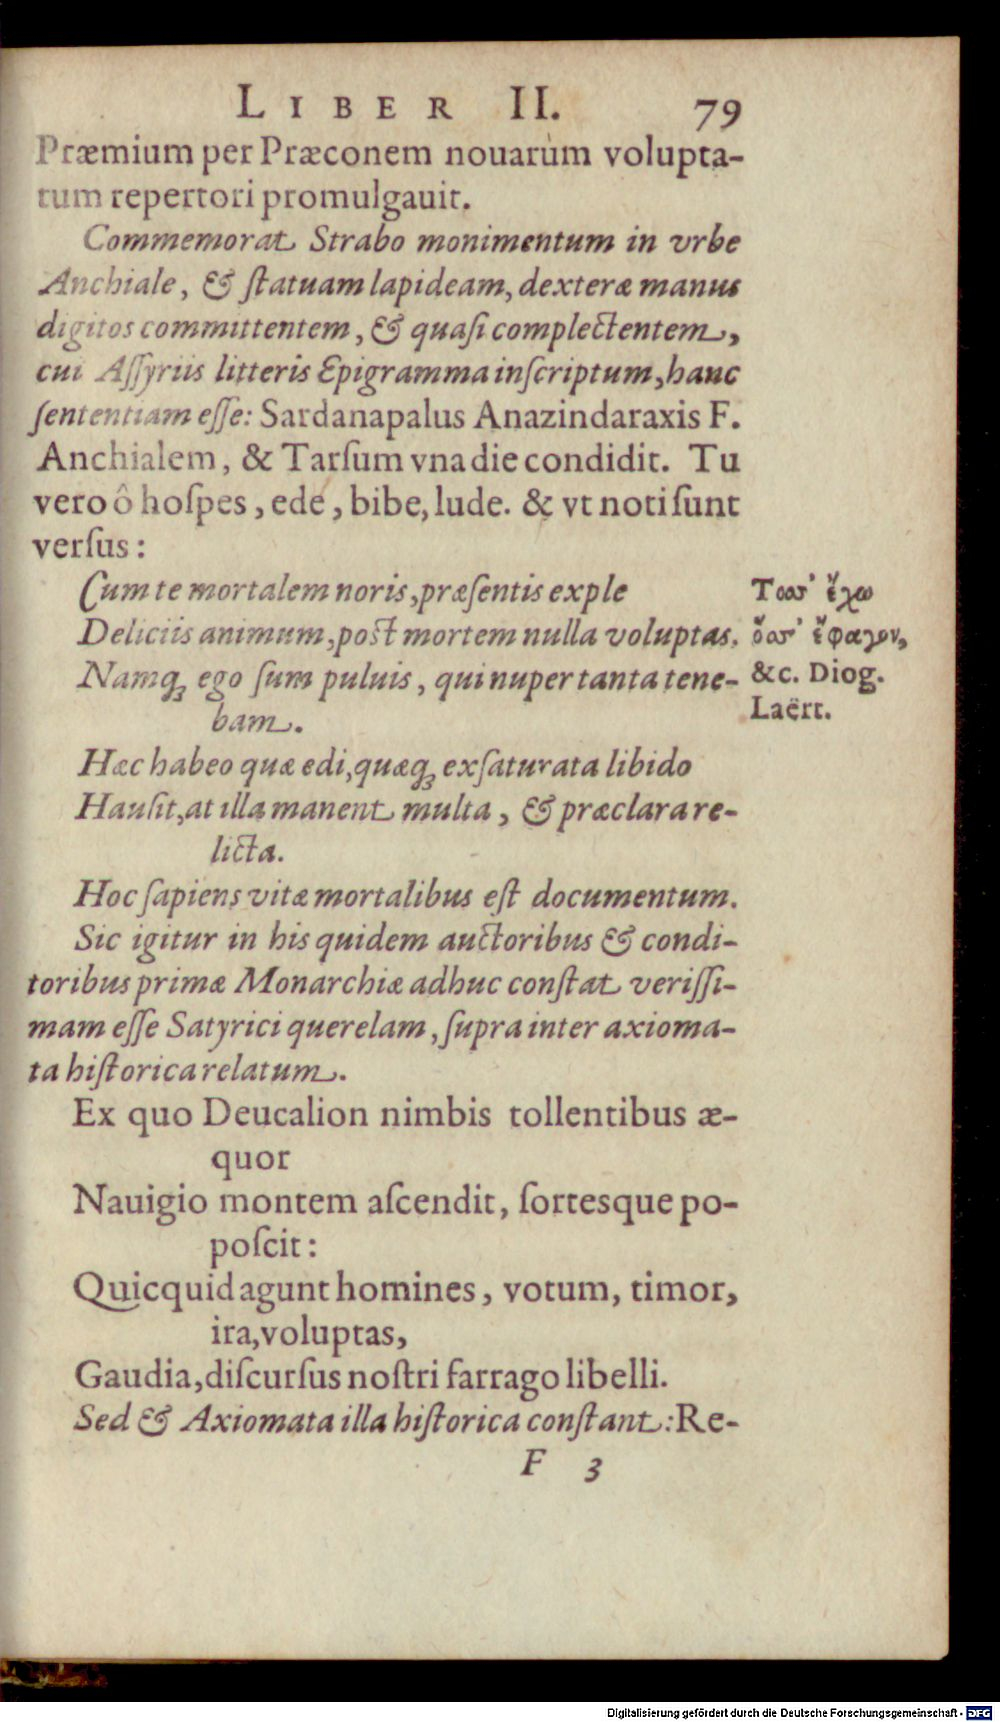 LIBER II. 79
Præmium per Præconem nouarùm volupta-
tum repertori promulgauit.
Commemorat Strabo monimentum in vrbe
Anchiale, & ſtatuam lapideam, dexteræ manus
digitos committentem, & quaſi complectentem,
cui Aſſyriis litteris Epigramma inſcriptum, hanc
ſententiam eſſe: Sardanapalus Anazindaraxis F.
Anchialem, & Tarſum vna die condidit. Tu
vero ô hoſpes, ede, bibe, lude. & vt noti ſunt
verſus:
Cum te mortalem noris, præſentis exple
Deliciis animum, poſt mortem nulla voluptas.
Namq; ego ſum puluis, qui nuper tanta tene-
bam.
Hæc habeo quæ edi, quæq; exſaturata libido
Hauſit, at illa manent multa, & præclara re-
licta.
Hoc ſapiens vitæ mortalibus eſt documentum.
Τοσσ' ἔχω
ὅσσ' ἔφαγον,
&c. Diog.
Laërt.
Sic igitur in his quidem auctoribus & condi-
toribus primæ Monarchiæ adhuc conſtat veriſſi-
mam eſſe Satyrici querelam, ſupra inter axioma-
ta hiſtorica relatum.
Ex quo Deucalion nimbis tollentibus æ-
quor
Nauigio montem aſcendit, ſortesque po-
poſcit:
Quicquid agunt homines, votum, timor,
ira, voluptas,
Gaudia, diſcurſus noſtri farrago libelli.
Sed & Axiomata illa hiſtorica conſtant: Re-
F 3
Digitalisierung gefördert durch die Deutsche Forschungsgemeinschaft - DFG